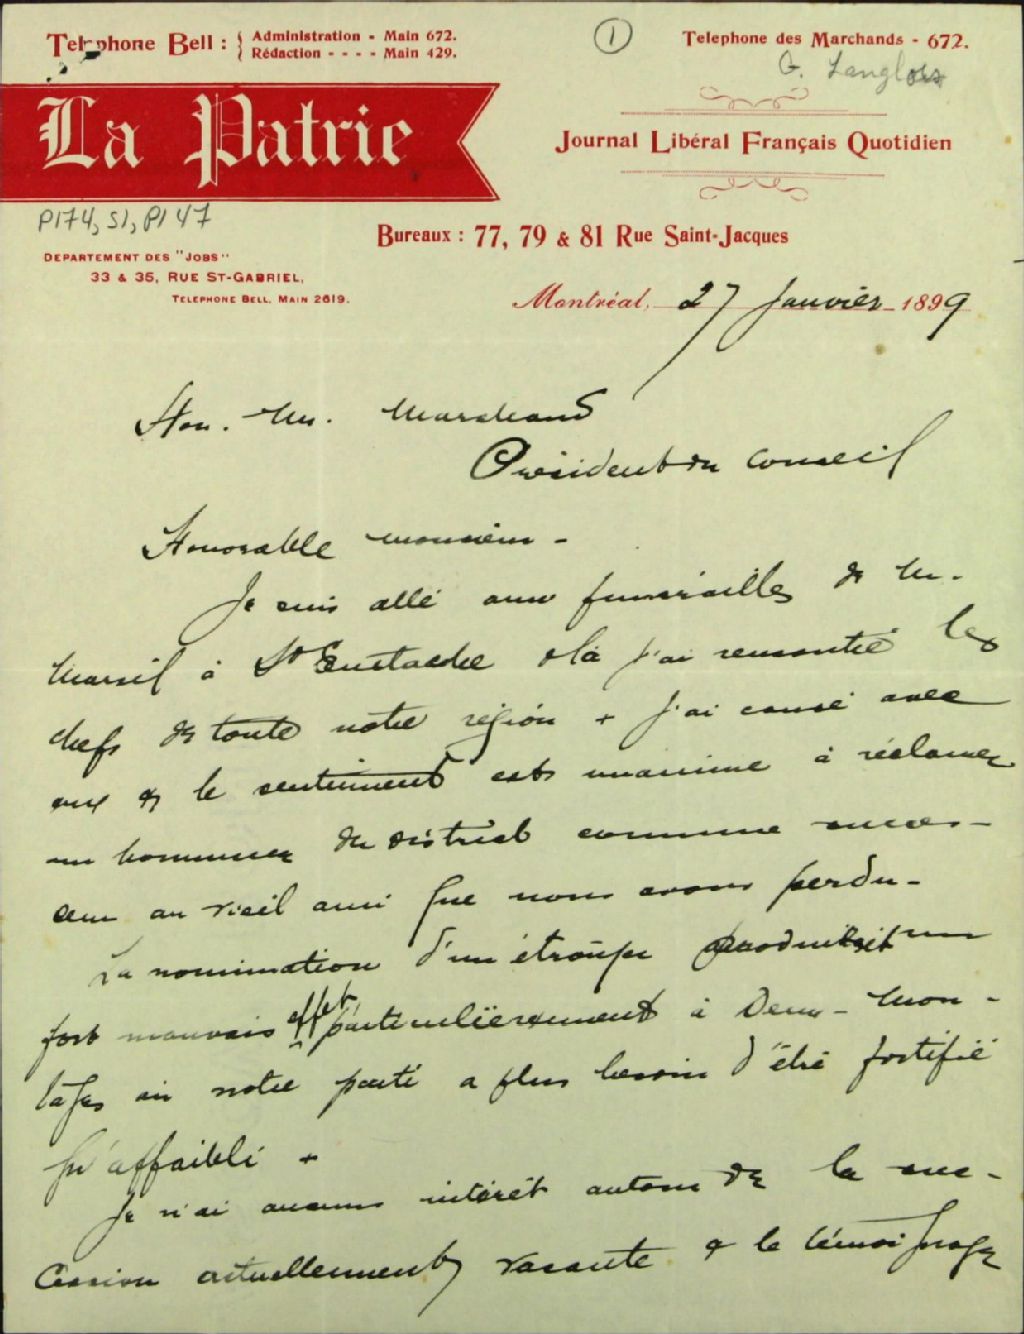 Telephone Bell : { Administration - Main 672.
Rédaction - - - - Main 429.
1
Telephone des Marchands - 672.
G. Langlois
La Patrie
Journal Libéral Français Quotidien
P174, S1, P147
Bureaux : 77, 79 & 81 Rue Saint-Jacques
DEPARTEMENT DES "JOBS"
33 & 35, RUE ST-GABRIEL,
TELEPHONE BELL, MAIN 2619.
Montréal, 27 Janvier 1899
Hon. M. Marchand
Président du Conseil
Honorable monsieur -
Je suis allé aux funérailles de M.
Marsil à St Eustache & là j'ai rencontré les
chefs de toute notre région & j'ai causé avec
eux & le sentiment est unanime à réclamer
un homme du district comme succes-
seur au vieil ami que nous avons perdu -
La nomination d'un étranger produirait un
fort mauvais effet particulièrement à Deux-Mon-
tagnes où notre parti a plus besoin d'être fortifié
qu'affaibli &
Je n'ai aucun intérêt autour de la suc-
cession actuellement vacante & le témoignage